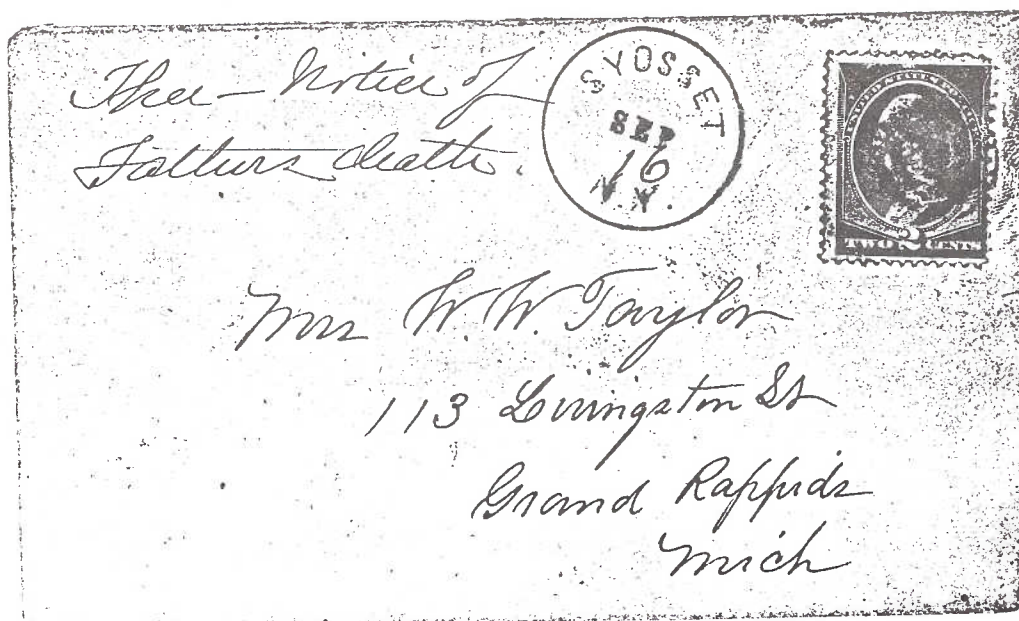 Notice of
Fathers death.
SYOSSET
SEP
16
N.Y.
TWO 2 CENTS
Mrs W. W. Taylor
113 Livingston St
Grand Rappids
Mich